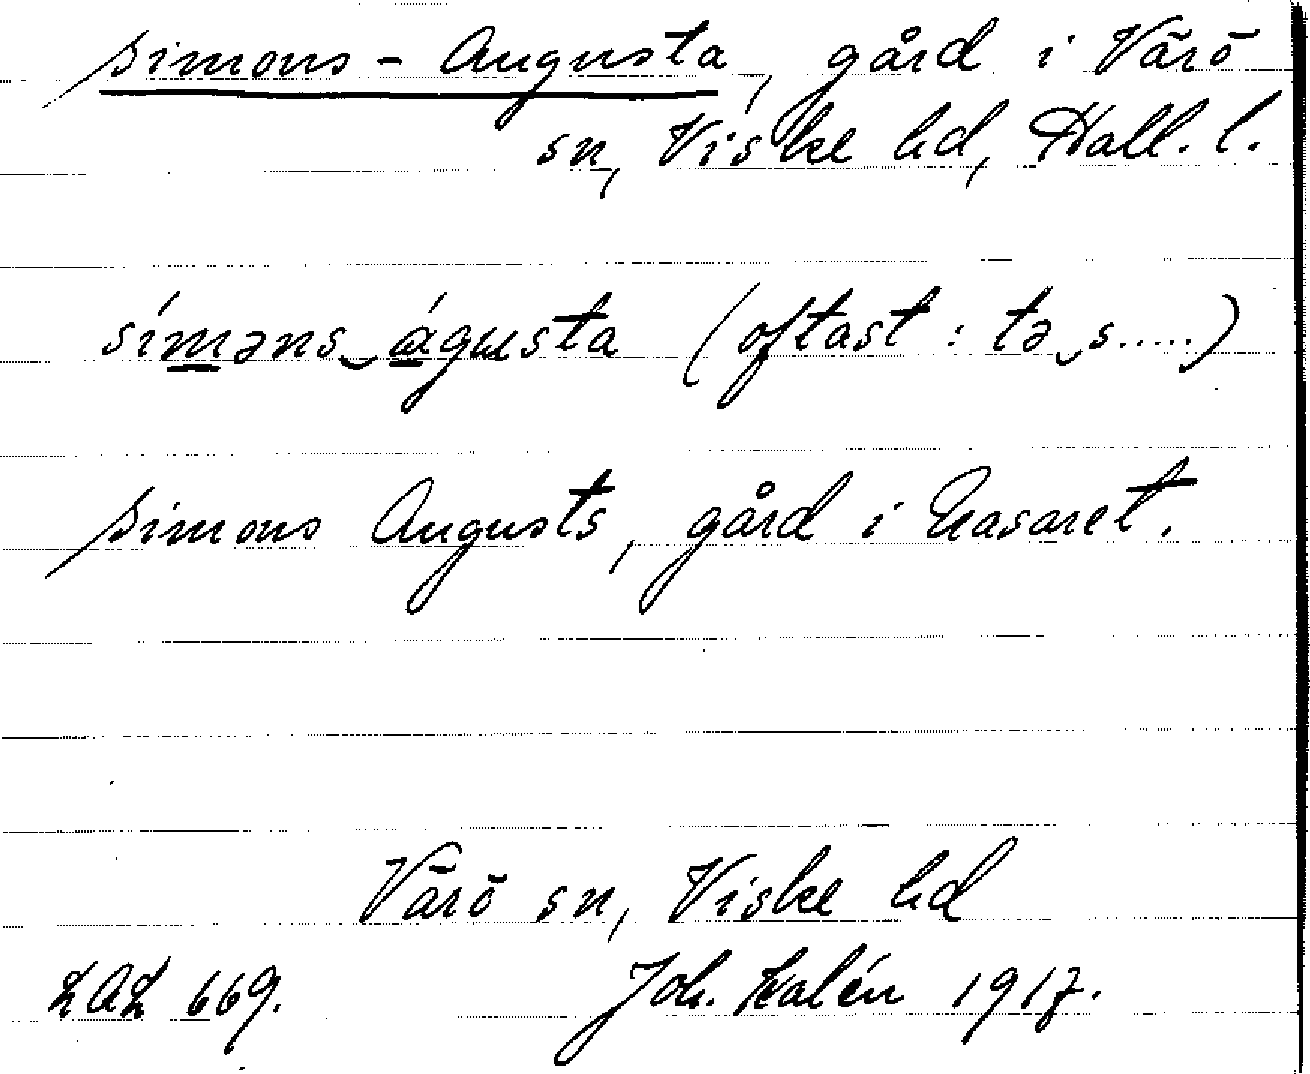 Simons-Augusta, gård i Värö
sn, Viske hd, Hall. l.
síməns‿águsta (oftast: tə‿s.....)
Simons Augusts, gård i Nasaret.
Värö sn, Viske hd
LAL 669. Joh. Kalén 1917.